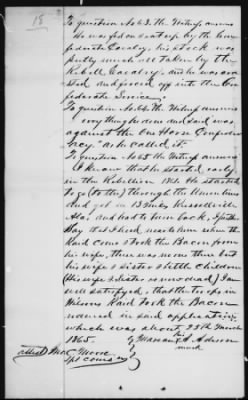 18
To question No 63. The Witness answers
He was fed on & eat up by the Con-
federate Cavalry, his stock was
pretty much all taken by the
Rebell Cavalry, and he was arre
sted and forced off into the Con-
federate Service.
To question No 64. the Witness answers
every thing he done and said was
against the Confed-
racy "as he called it"
To question No 65 the Witness answers
I know that he started early
in the Rebellion 1861. He started
to go (to the) through the Union lines
and got in 13 miles Russelville
Ala. and had to turn back,
Day that I heard was to him when the
Raid came & took the Bacon from
his wife, there was none there but
his wife & sister & little children
(His wife & sister is now dead) I am
well satisfied, that the troops in
Wilsons Raid took the Bacon
named in said application,
which was about 23th March
1865.
his
A. Aderson
mark
attest
Spl com